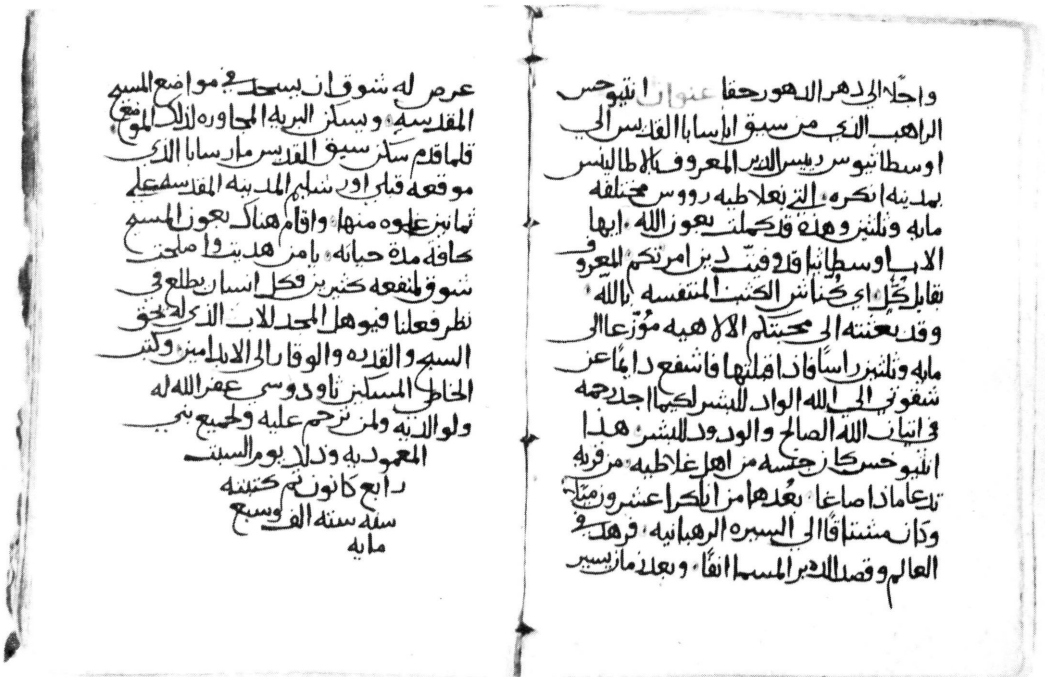 واجلّا الى دهر الدهور حقا عنوان انتيوخس
الراهب الذي من سيق ابا سابا القديس الي
اوسطاتيوس رييس الدير المعروف بالاطالينس
بمدينه انكره، التي بغلاطيه رووس مختلفه
مايه وثلثين وهذه قد كملت بعون الله، ايها
الاب اوسطاتيا قد وفيت دين امرتكم المعروف
تقابل كُلّ، اي كُناش الكتب المتنفسه بالله،
وقد بعثته الى محبتكم الالاهيه مُوَزّعا الى
مايه وثلثين راسًا فاذا قبلتها فاشفع دايمًا عن
شقوتي الي الله الواد للبشر لكيما اجد رحمه
في اتيان الله الصالح والودود للبشر، هذا
انتيوخس كان جنسه من اهل غلاطيه، من قريه
تدعا ماذا صاغا، بُعدها من انكرا عشرون ميلا،
وكان مشتاقًا الي السيره الرهبانيه، فزهد في
العالم وقصد الدير المسما انفًا، وبعد زمان يسير
عرض له شوق ان يسجد في مواضع المسيح
المقدسه، ويسكن البريه المجاوره لذلك الموضع،
فلما قدم سكن سيق القديس مار سابا الذي
موقعه قبلي اورشليم المدينه المقدسه على
ثمانين غلوه منها، واقام هناك بعون المسيح
كافة مدة حياته، يا من هديت واصلحت
شوق لمنفعه كثيرين وكل انسان يطلع في
نظر فعلنا فيوهل المجد للاب الذي له يحق
السبح والقدره والوقار الى الابد امين، وكتب
الخاطي المسكين تاودوسي غفر الله له
ولوالديه ولمن ترحم عليه ولجميع بني
المعموديه وذلك يوم السبت
رابع كانون تم كتبته
سنه سته الف وسبع
مايه